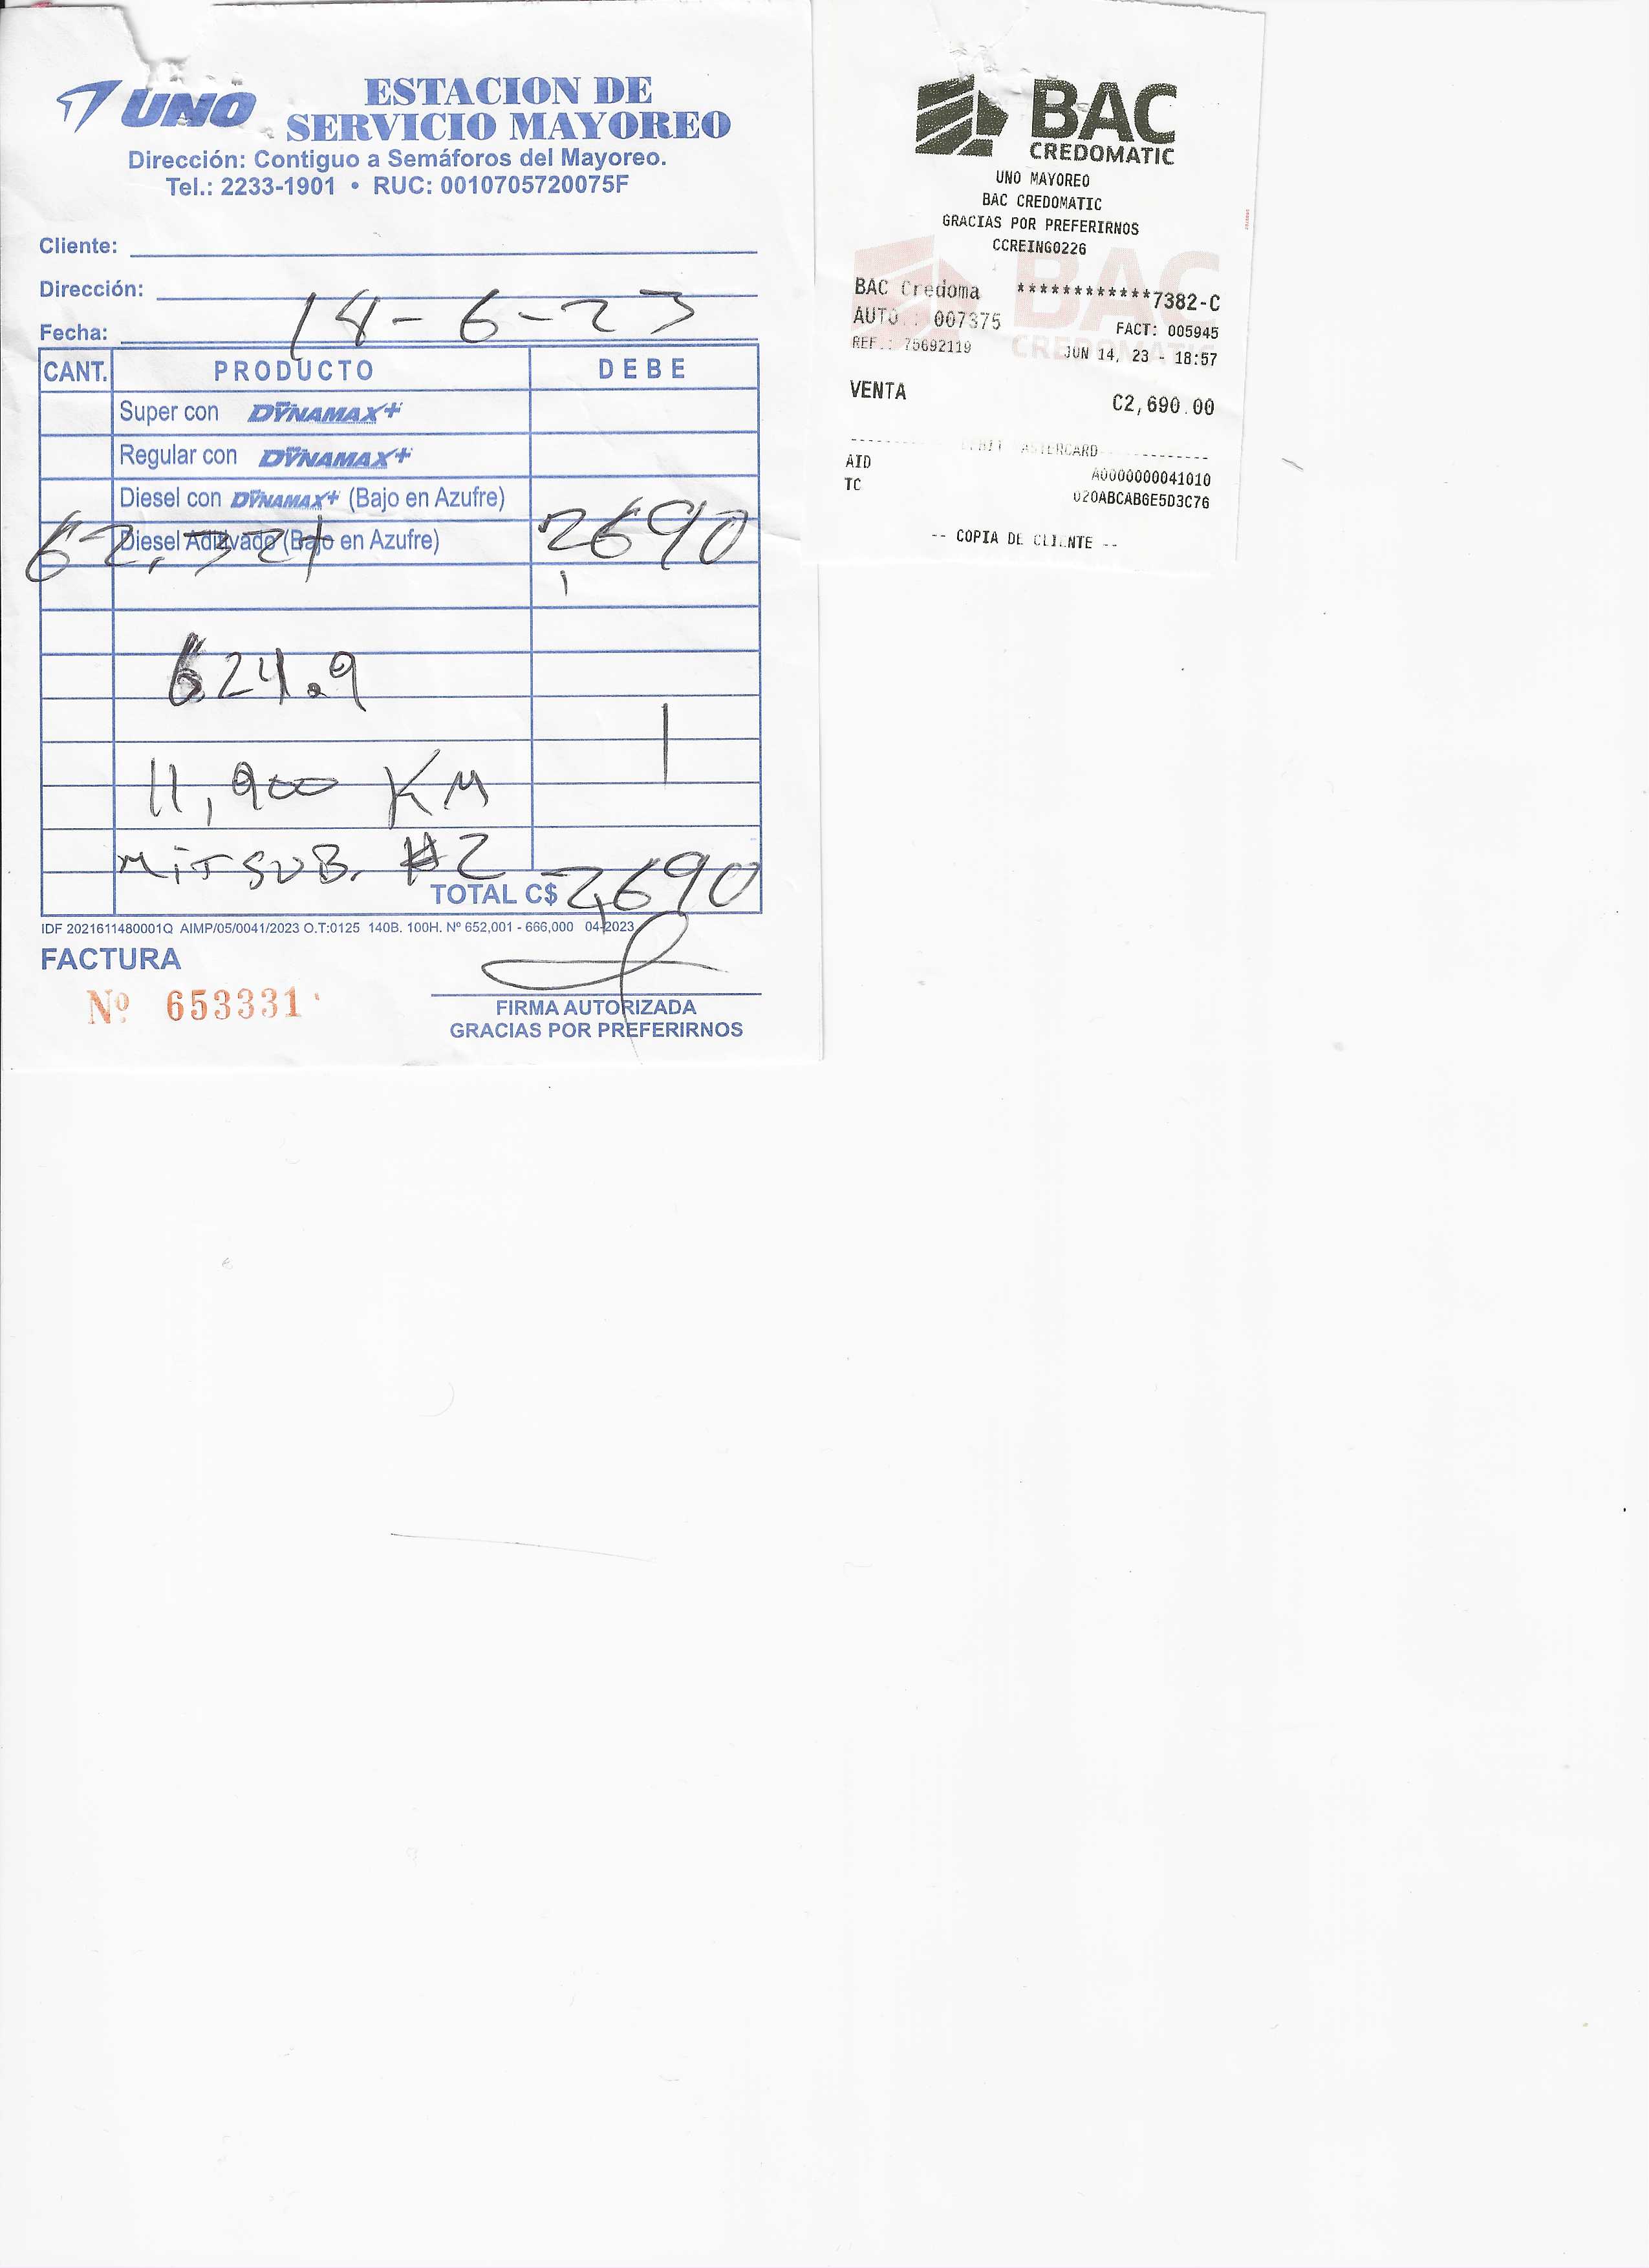 UNO
ESTACION DE
SERVICIO MAYOREO
Dirección: Contiguo a Semáforos del Mayoreo.
Tel.: 2233-1901 • RUC: 0010705720075F
Cliente:
Dirección:
Fecha: 14-6-23
CANT. PRODUCTO DEBE
Super con DYNAMAX+
Regular con DYNAMAX+
Diesel con DYNAMAX+ (Bajo en Azufre)
Diesel Aditivado (Bajo en Azufre) 2690
624.9
11,900 KM
MITSUB. #2
TOTAL C$ 2,690
IDF 2021611480001Q AIMP/05/0041/2023 O.T:0125 140B. 100H. Nº 652,001 - 666,000 04-2023
FACTURA
Nº 653331
FIRMA AUTORIZADA
GRACIAS POR PREFERIRNOS
BAC
CREDOMATIC
UNO MAYOREO
BAC CREDOMATIC
GRACIAS POR PREFERIRNOS
CCREING0226
BAC Credoma ************7382-C
AUTO.: 007375 FACT: 005945
REF.: 75692119 JUN 14, 23 - 18:57
VENTA C2,690.00
AID A0000000041010
TC 020ABCAB6E5D3C76
-- COPIA DE CLIENTE --